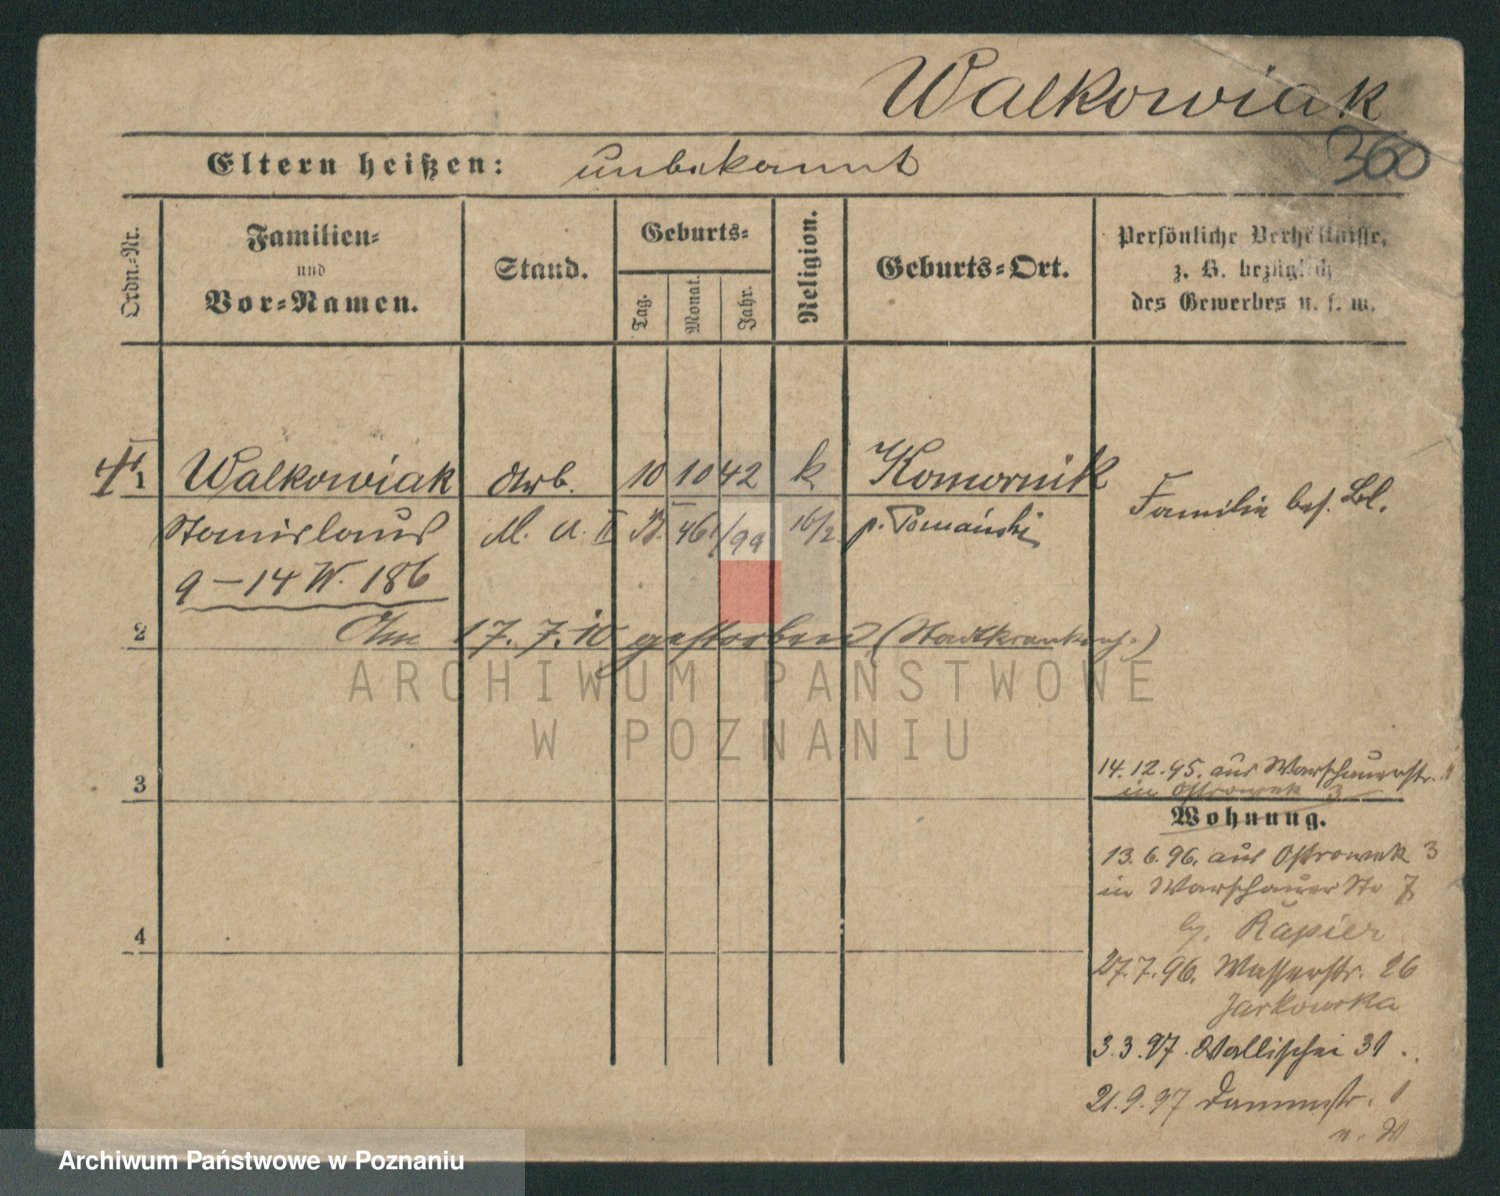 Walkowiak
360
Eltern heißen: unbekannt
Ordn.-Nr.
Familien-
und
Vor-Namen.
Stand.
Geburts-
Tag.
Monat.
Jahr.
Religion.
Geburts-Ort.
Persönliche Verhältnisse,
z. B. bezüglich
des Gewerbes u. s. w.
1 Walkowiak Arb. 10 10 42 k Komornik
Stanislaus
Familie bes. Bl.
9-14 W. 186
2 Am 17. 7. 10 gestorben (Stadtkrankenh.)
3
14.12.95. aus Warschauerstr.
in Ostrowek 3
Wohnung.
13.6.96. aus Ostrowek 3
in Warschauer Str 7
Rapier
4
27.7.96. Wasserstr. 26
Jarkowska
3.3.97. Wallischei 31.
21.9.97 Dammstr. 1
ARCHIWUM PAŃSTWOWE
W POZNANIU
Archiwum Państwowe w Poznaniu